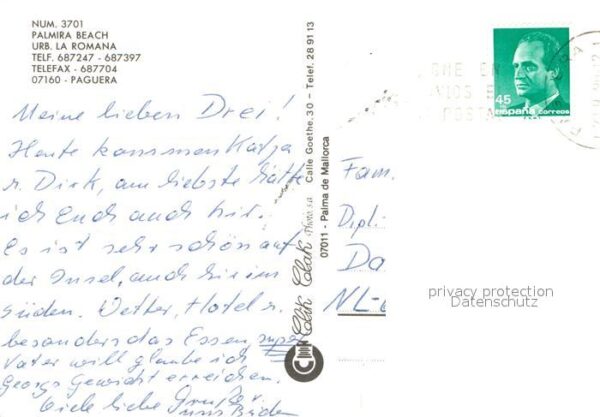 NUM. 3701
PALMIRA BEACH
URB. LA ROMANA
TELF. 687247 - 687397
TELEFAX - 687704
07160 - PAGUERA
Meine lieben Drei!
Heute kommen Katja
u. Dirk, am liebsten hätte
ich Euch auch hier.
Es ist sehr schön auf
der Insel, auch hier im
Süden. Wetter, Hotel u.
besonders das Essen super
Vater will glaube ich
Georgs Gewicht erreichen.
Viele liebe Grüße
Clik Clak Photo s.a. Calle Goethe, 30 - Telef. 28 91 13
07011 - Palma de Mallorca
45
españa correos
POSTA
Fam.
Dipl.
Da
NL-
privacy protection
Datenschutz